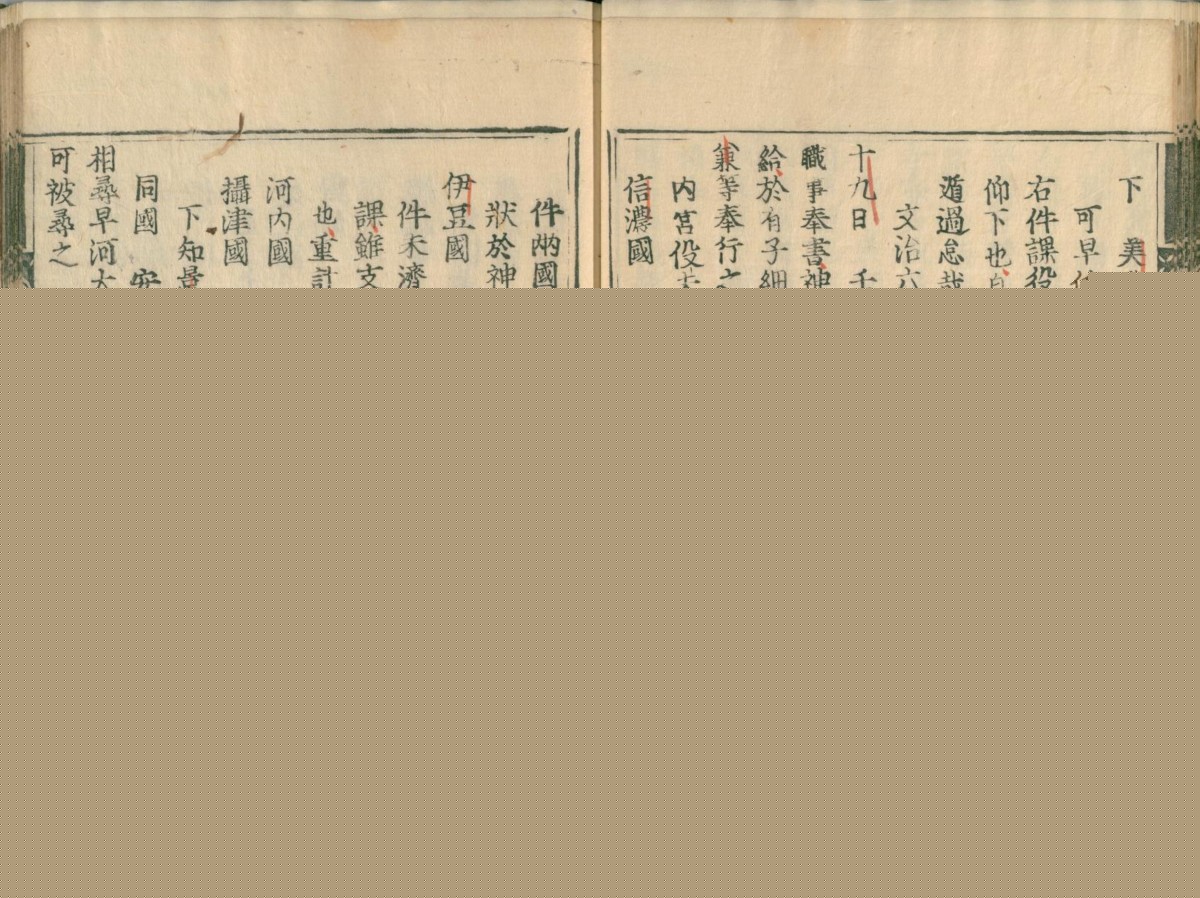 下　美
可早
右件課役
仰下也
遁過怠哉
文治六
十九日
職事奉書神
給於有子細
等奉行之
内宮役夫
信濃國
件兩國
狀於神
伊豆國
件未濟
課雖支
也重計
河内國
攝津國
下知
同國　安
相尋早河太
可被尋之